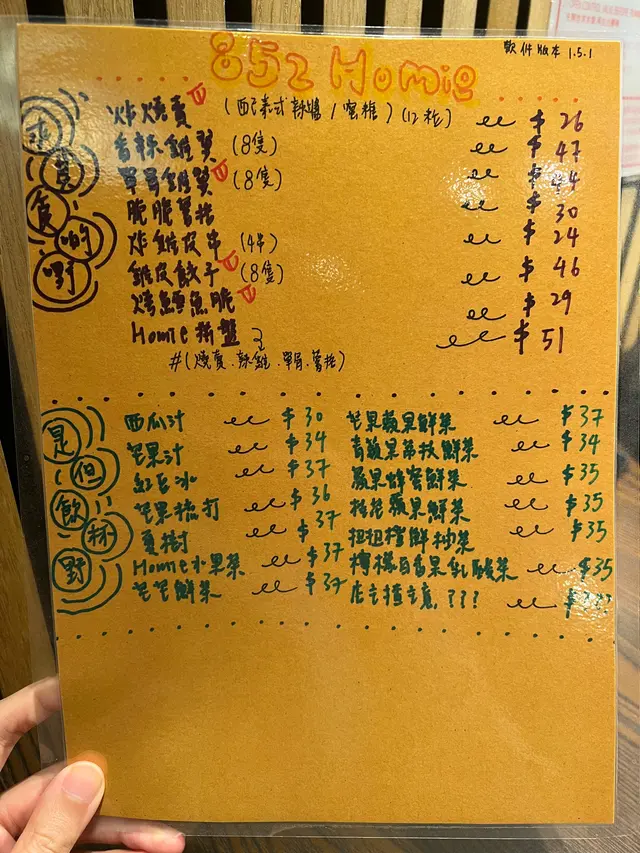 852 Homie
軟件版本 1.5.1
炸燒賣 (配泰式辣醬 / 蜜糖) (12粒) $26
香辣雞翼 (8隻) $47
單骨雞翼 (8隻) $44
脆脆薯格 $30
炸雞皮串 (4串) $24
雞皮餃子 (8隻) $46
烤鱈魚脆 $29
Homie拼盤 $51
#(燒賣.辣雞.單骨.薯格)
是但飲杯野
西瓜汁 $30
芒果汁 $34
紅豆冰 $37
芒果梳打 $36
夏樹 $37
Homie水果茶 $37
芒芒鮮茶 $37
芒果蘋果鮮茶 $37
青蘋果茶 $34
蘋果蜂蜜鮮茶 $35
桂花蘋果鮮茶 $35
柑桔檸鮮柚茶 $35
百香果乳酸茶 $35
店主揸主意.???